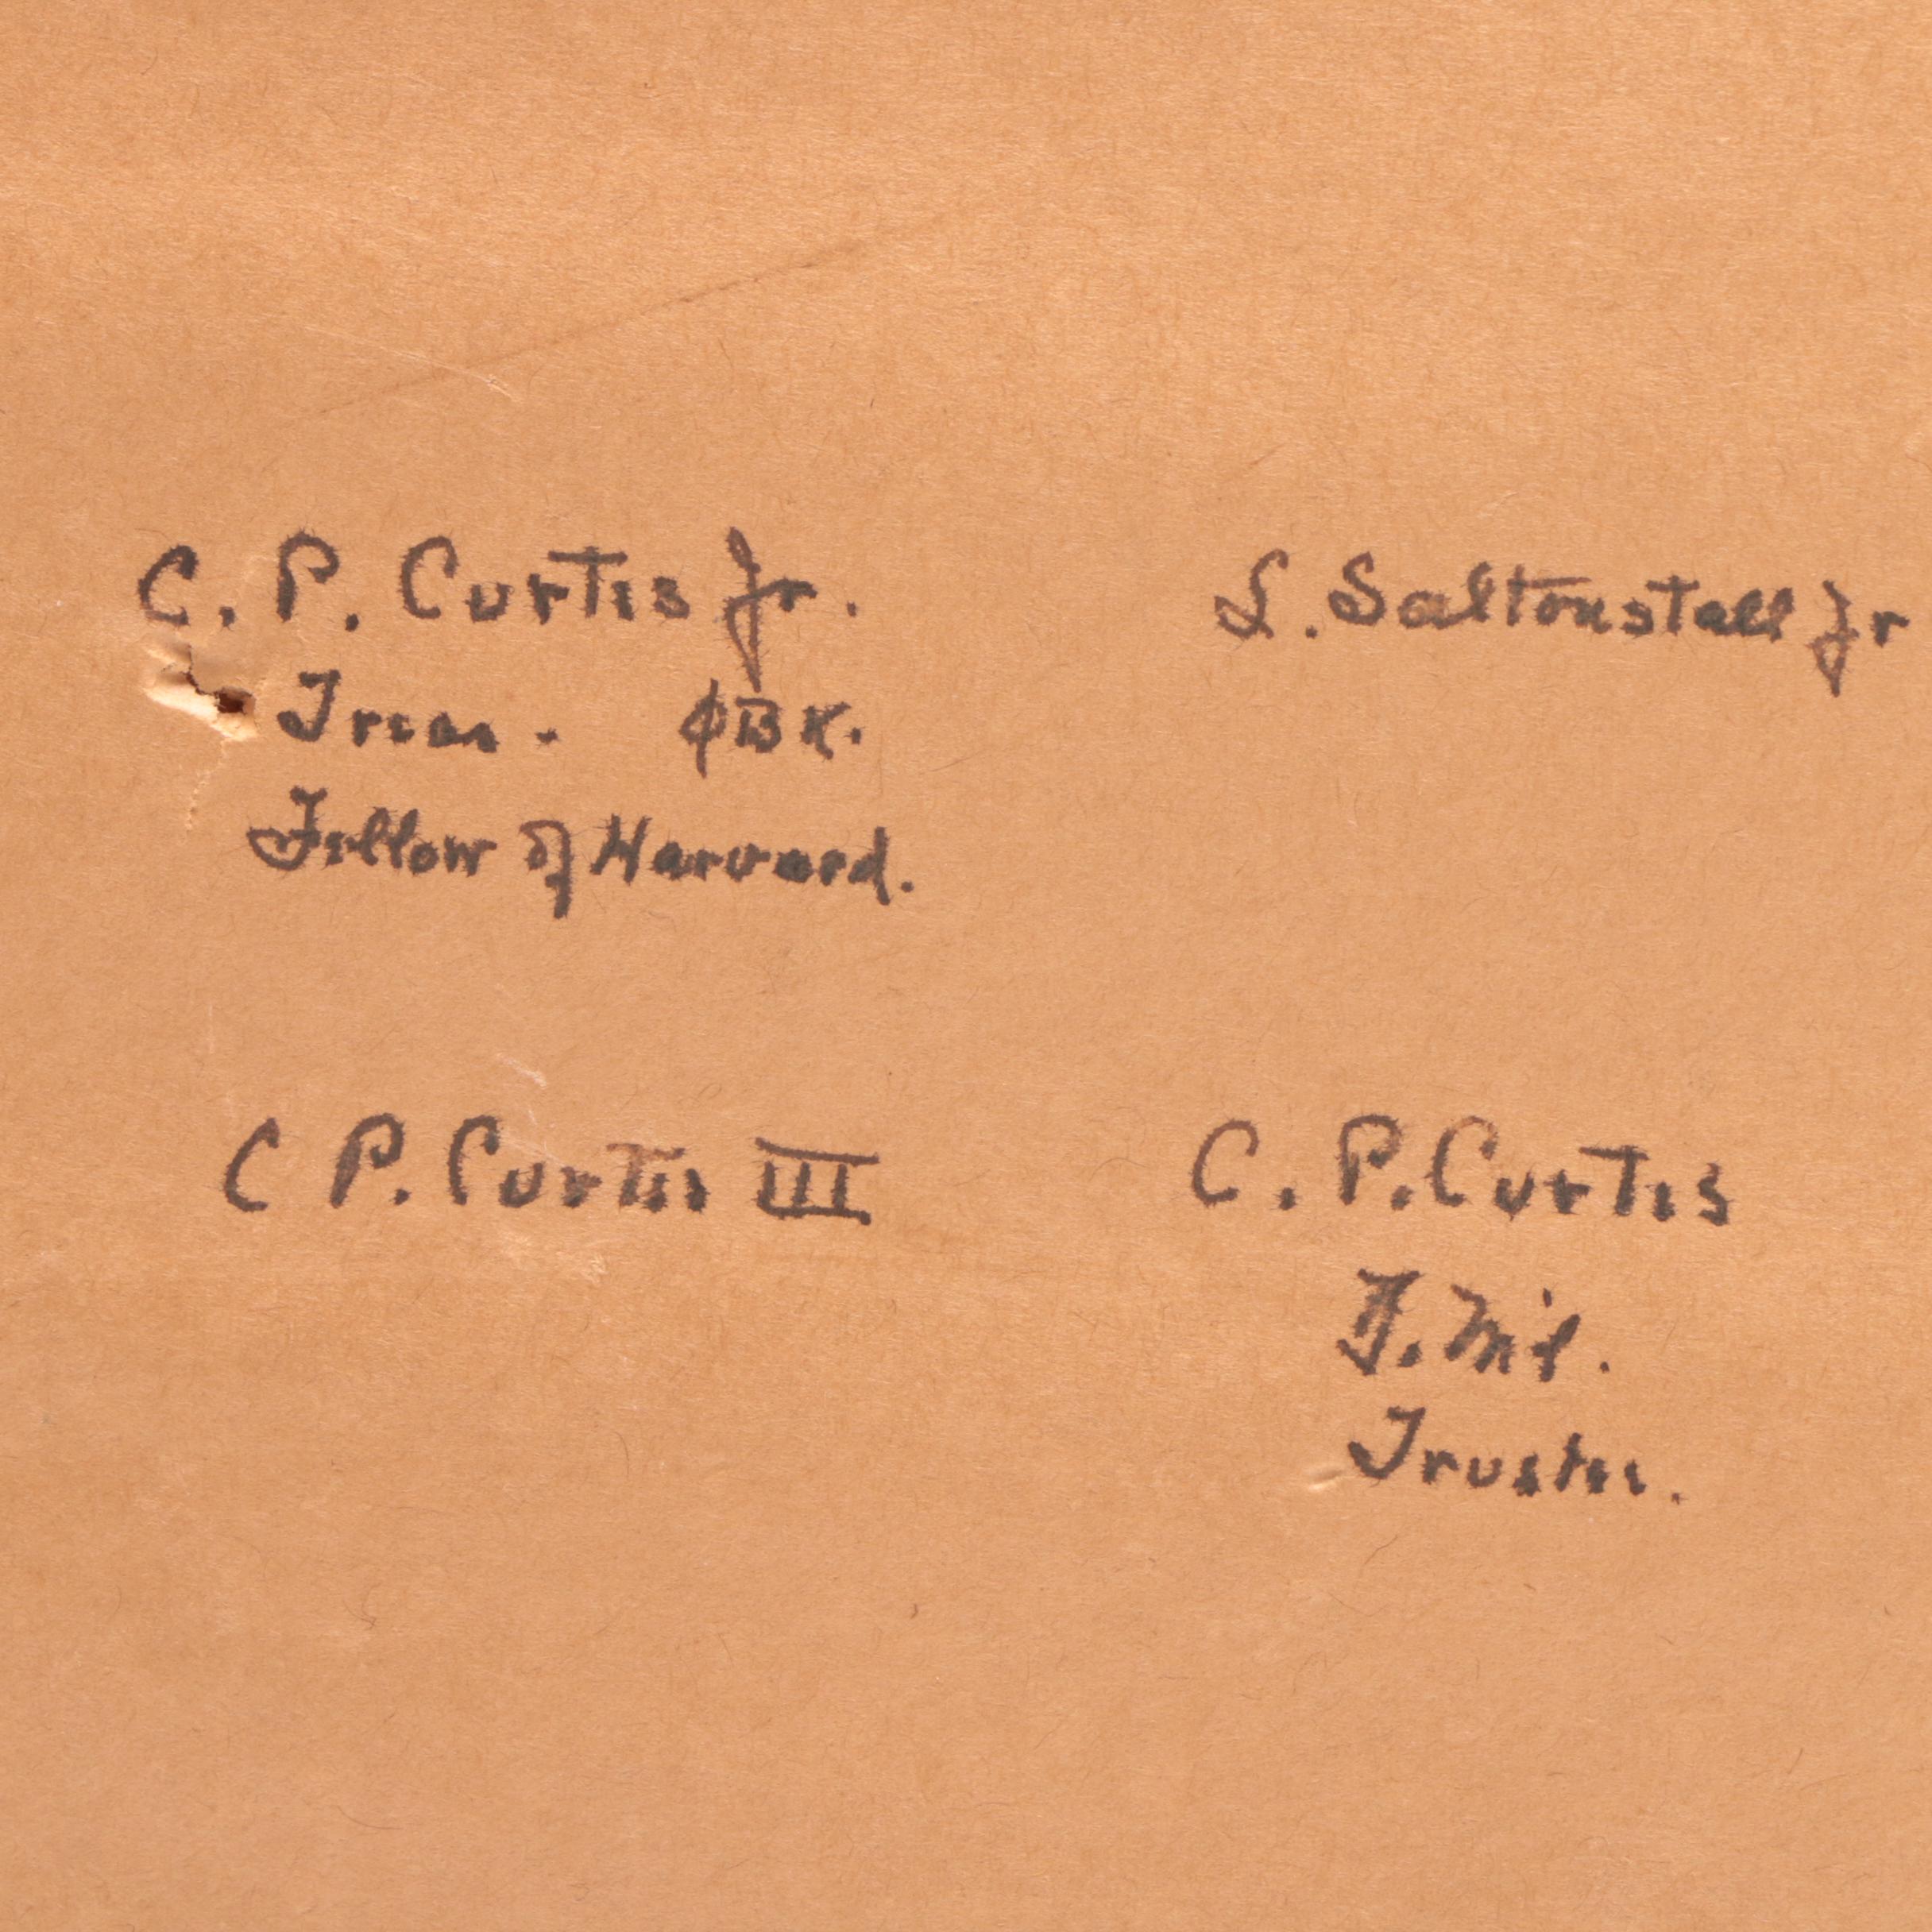 C. P. Curtis Jr.
Treas. ΦBK.
Fellow of Harvard.
L. Saltonstall Jr
C P. Curtis III
C. P. Curtis
Trustee.